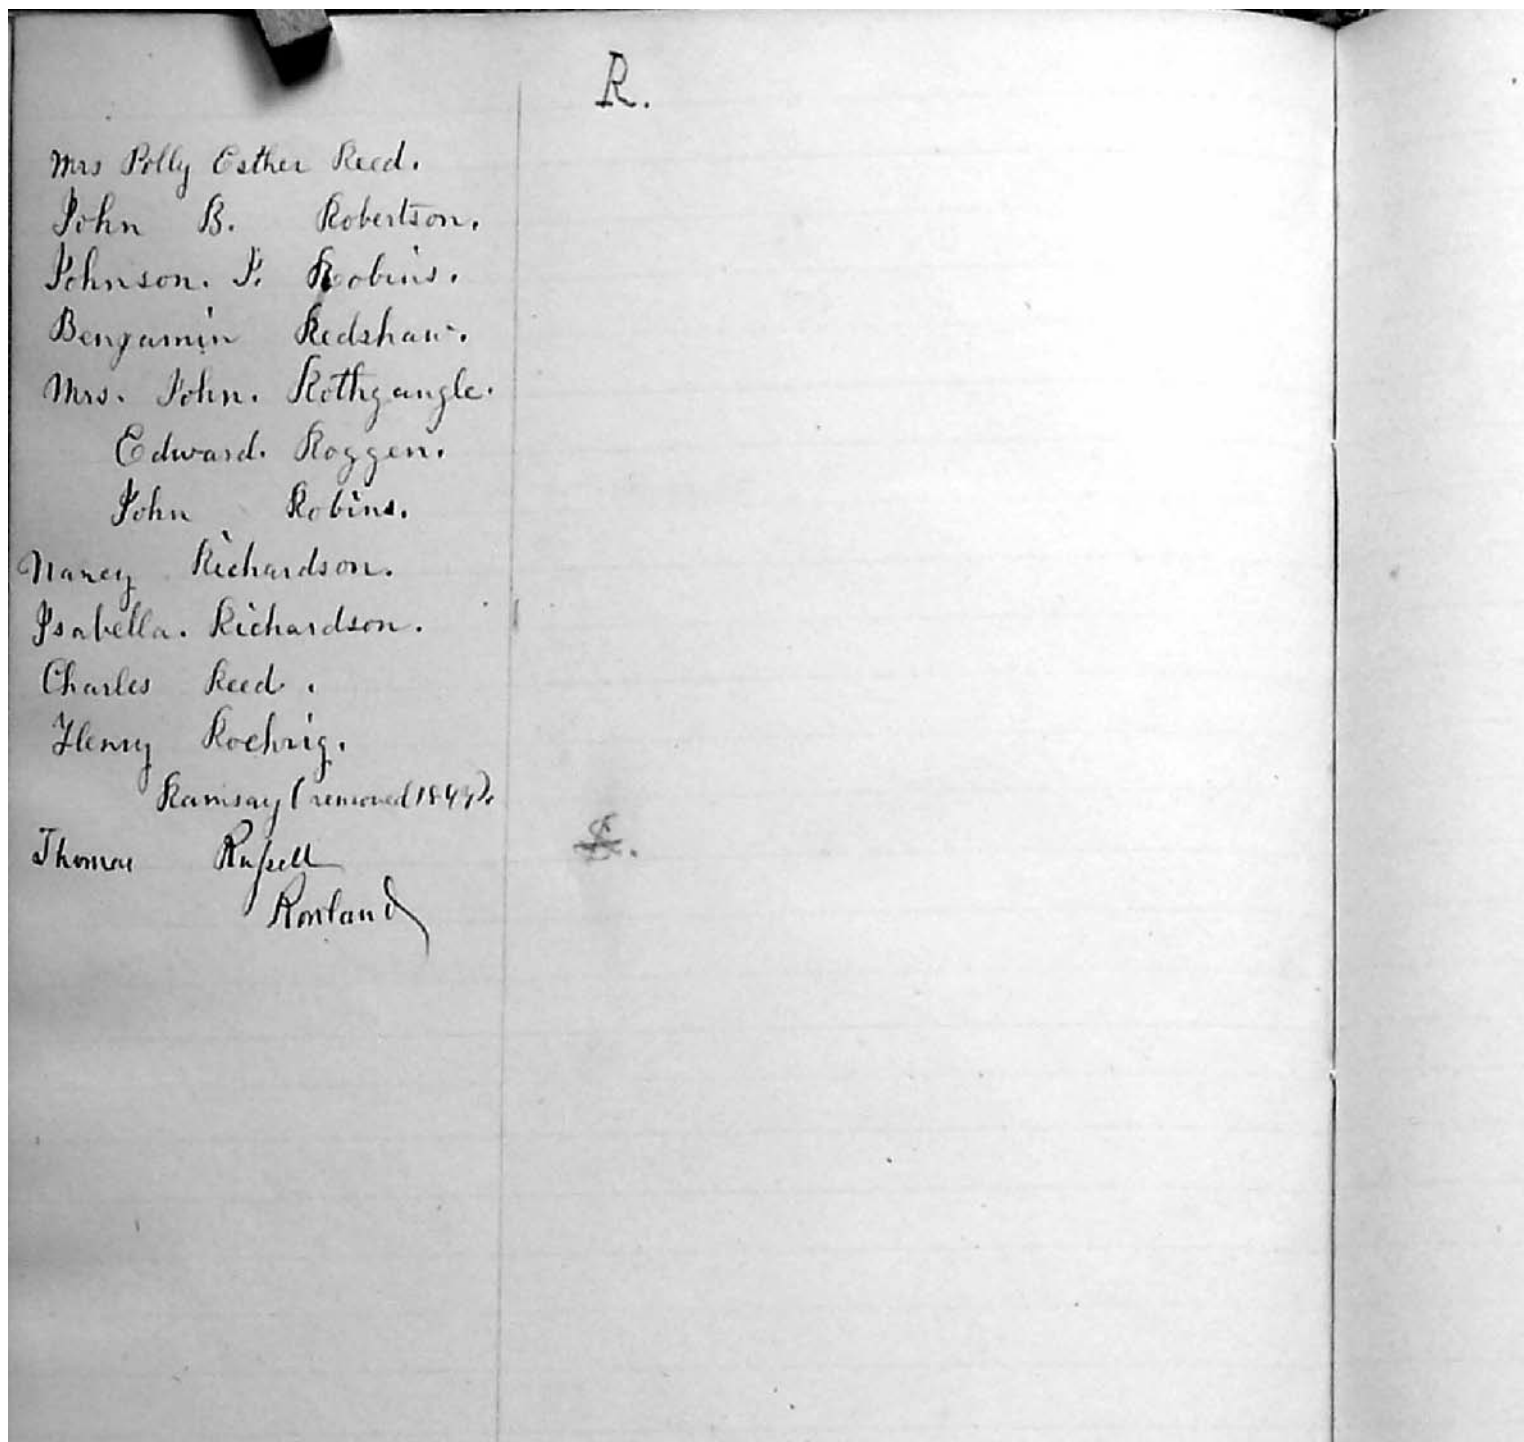 R.
Mrs Polly Esther Reed.
John B. Robertson.
Johnson. J. Robins.
Benjamin Redshaw.
Mrs. John. Rothgangle.
Edward. Roggen.
John Robins.
Nancy Richardson.
Isabella. Richardson.
Charles Reed.
Henry Roehrig.
Ramsay (removed
Thomas Russell
Rowland